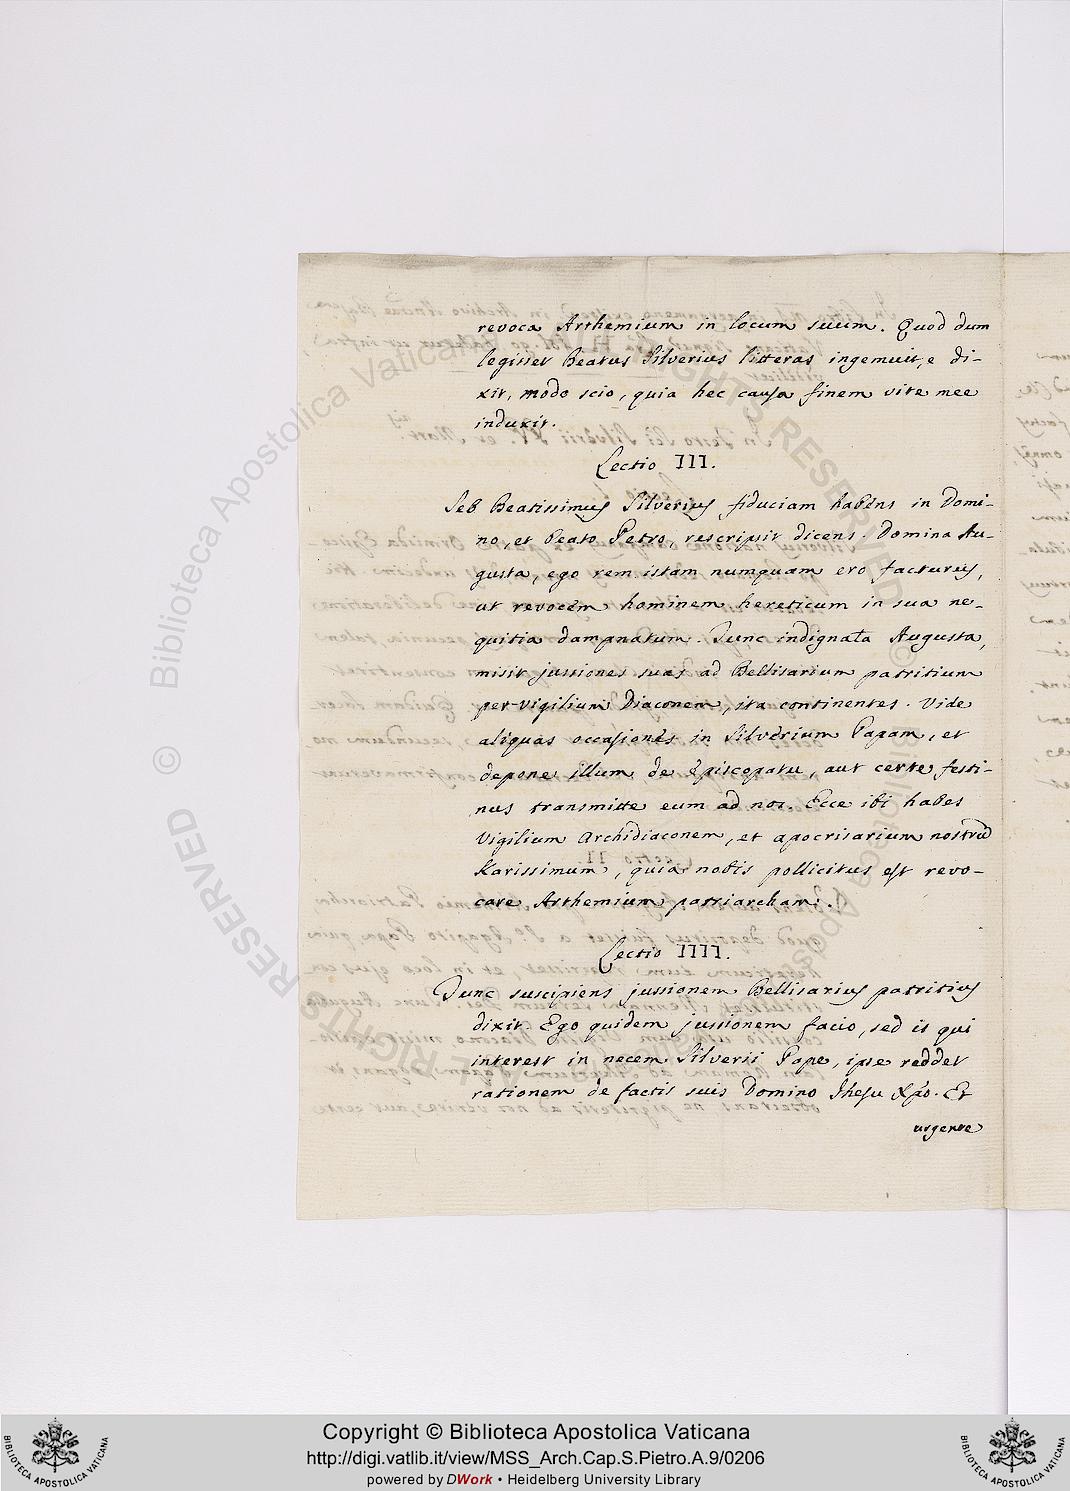 revoca Arthemium in locum suum. Quod dum
legisset Beatus Silverius litteras ingemuit, e di-
xit, modo scio, quia hec causa finem vite mee
induxit.
Lectio III.
Seb Beatissimus Silverius fiduciam habens in Domi-
no, et beato Petro, rescripsit dicens. Domina Au-
gusta, ego rem istam numquam ero facturus,
ut revocem hominem hereticum in sua ne-
quitia dampnatum. Tunc indignata Augusta,
misit jussiones suas ad Bellisarium patritium
per Vigilium Diaconem, ita continentes. Vide
aliquas occasiones in Silverium Papam, et
depone illum de Episcopatu, aut certe festi-
nus transmitte eum ad nos. Ecce ibi habes
Vigilium Archidiaconem, et apocrisarium nostrũ
Karissimum, quia nobis pollicitus est revo-
care Arthemium patriarcham.
Lectio IIII.
Tunc suscipiens jussionem Bellisarius patritius
dixit. Ego quidem jussionem facio, sed is qui
interest in necem Silverii Pape, ipse reddet
rationem de factis suis Domino Jhesu Xpo. Et
urgente
Copyright © Biblioteca Apostolica Vaticana
http://digi.vatlib.it/view/MSS_Arch.Cap.S.Pietro.A.9/0206
powered by DWork • Heidelberg University Library
BIBLIOTECA APOSTOLICA VATICANA
BIBLIOTECA APOSTOLICA VATICANA
© Biblioteca Apostolica Vaticana ALL RIGHTS RESERVED
© Biblioteca Apostolica Vaticana ALL RIGHTS RESERVED